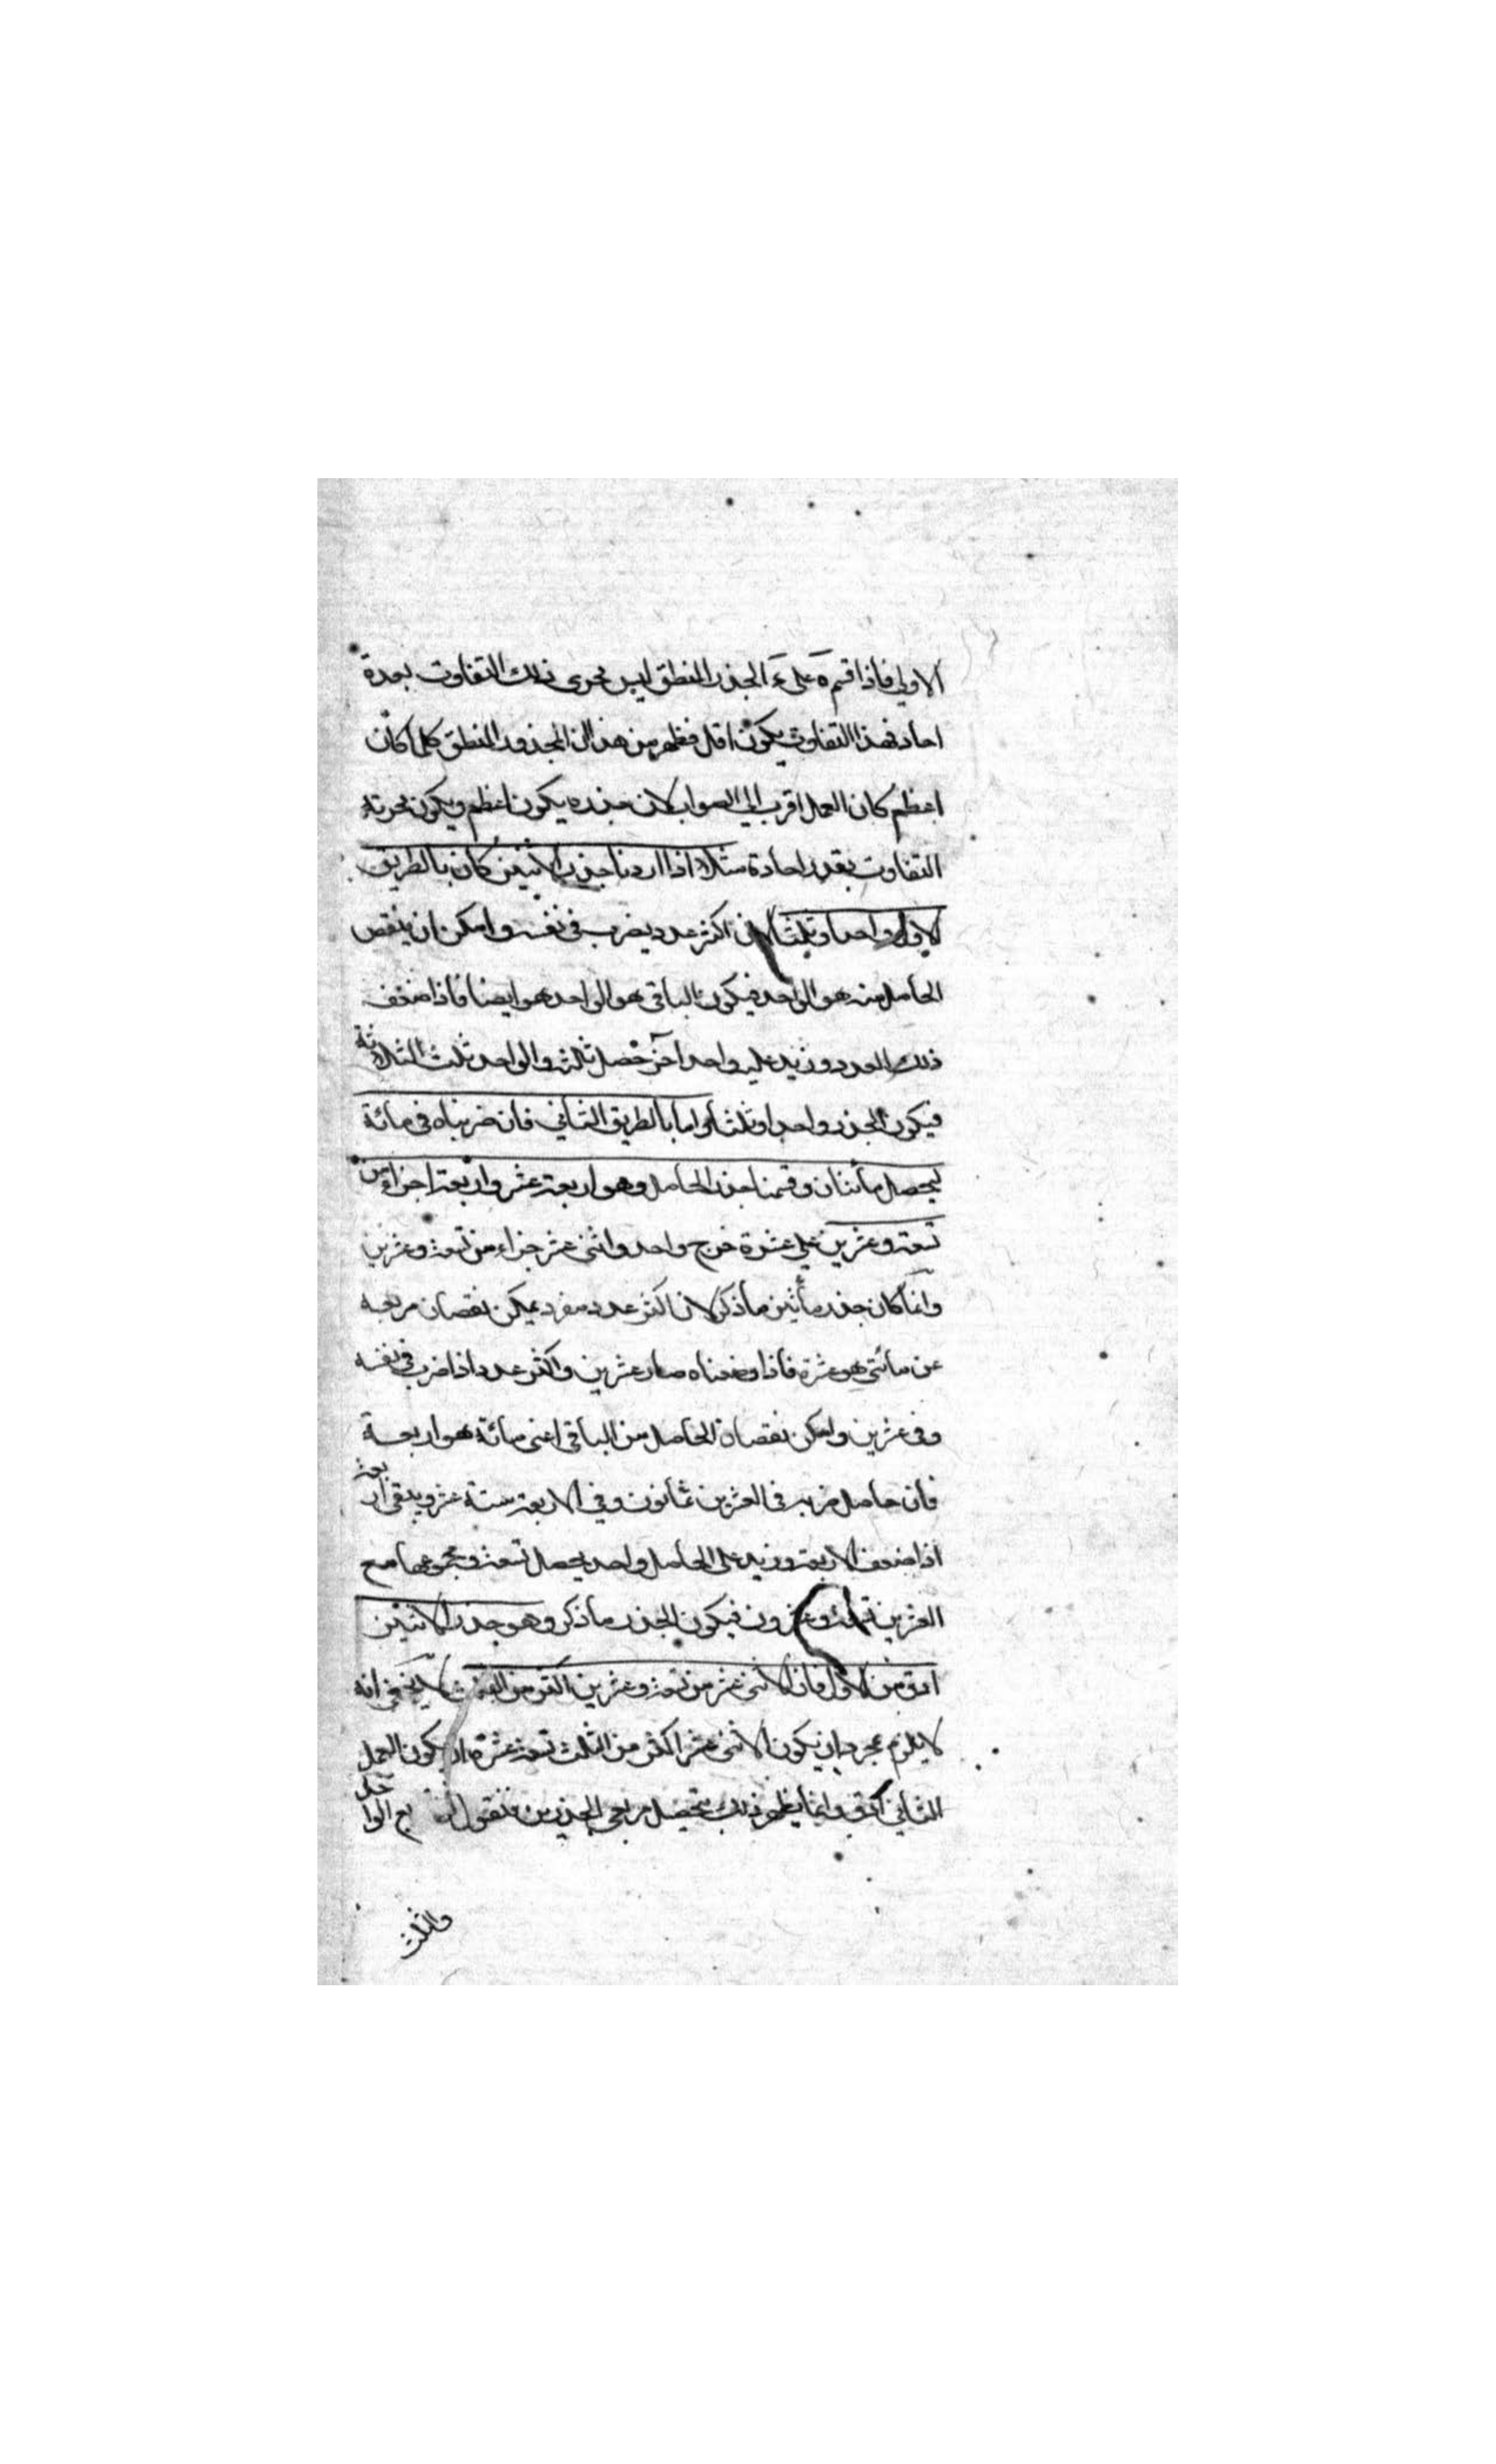 الاولي فاذا قسم ة على ءَ الجذر المنطق ليس يحرى ذلك التفاوت بعدة
احاد فهذا التفاوت يكون اقل فظهر من هذا ان المجذور المنطق كلما كان
اعظم كان العمل اقرب الي الصواب لان جذره يكون اعظم ويكون يحرته
التفاوت بقدر احادة مثلا اذا اردنا جذر الاثنين كان بالطريق
الاول واحدا وثلثا لان اكثر عدد يضرب في نفسه وامكن ان ينقص
الحاصل منه هو الواحد فيكون الباقي هو الواحد هو ايضا فاذا ضعف
ذلك العدد وزيد عليه واحد آخر حصل ثلثه والواحد ثلث الثلاثة
فيكون الجذر واحدا وثلثا واما بالطريق الثاني فان ضربناه في مائة
ليحصل مأتان وقسمنا جذر الحاصل وهو اربعة عشر واربعة اجزاء من
تسعة وعشرين علي عشرة خرج واحد واثنى عشر جزاء من تسعة وعشرين
وانما كان جذر مأتين ما ذكر لان اكثر عدد مفرد يمكن نقصان مربعه
عن مائتي هو عشرة فاذا وضعناه صار عشرين واكثر عدد اذا ضرب في نفسه
وفي عشرين وامكن نقصان الحاصل من الباقي اعني مائة هو اربعة
فان حاصل ضربه في العشرين ثمانون وفي الاربعة ستة عشر ويبقى اربعة
اذا ضعف الاربعة وزيد على الحاصل واحد يحصل تسعة ومجموعها مع
العشرين تسعة وعشرون فيكون الجذر ما ذكر وهو جذر الاثنين
ادق من الاول فان الاثنى عشر من تسعة وعشرين اكثر من الثلث لا يخفى انه
لا يلزم بمجرد ان يكون الاثنى عشر اكثر من الثلث تسعة عشرة ان يكون العمل
الثاني ادق وانما يظهر ذلك بتحصيل مربعي الجذرين فنقول ان مربع الواحد
والثلث